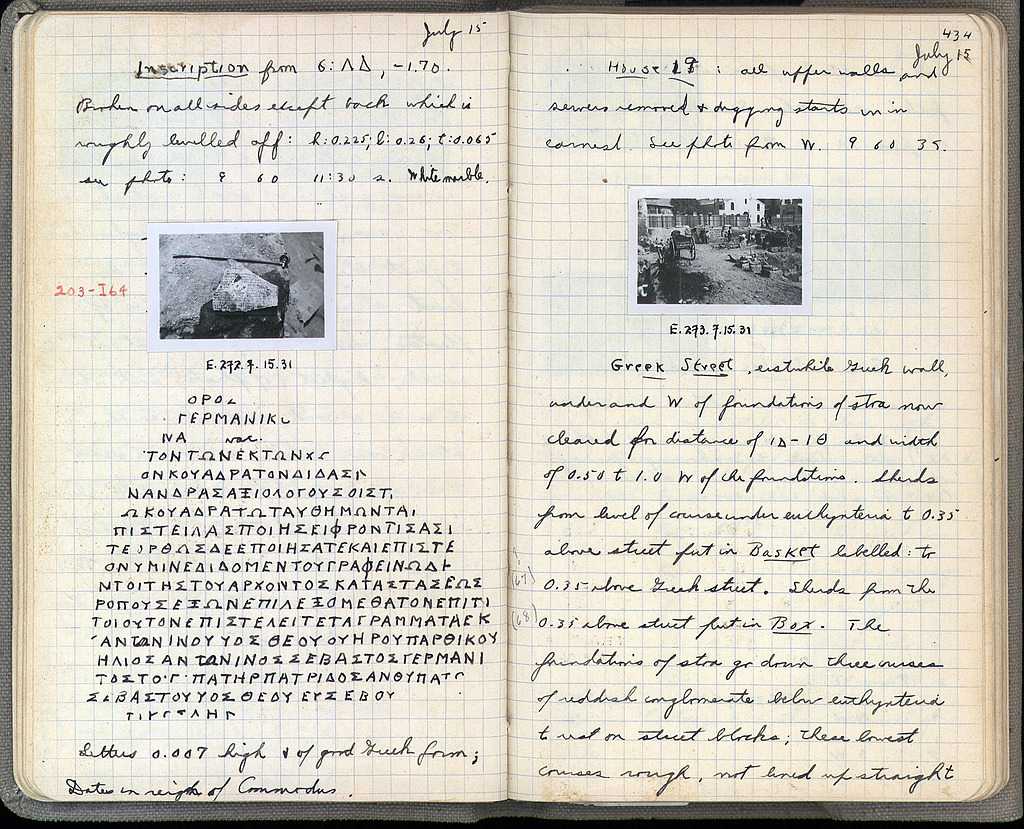 July 15
Inscription from 6: ΛΔ, -1.70.
Broken on all sides except back which is
roughly levelled off: h: 0.225; l: 0.26; t: 0.065
see photo: 9 60 11:30 s. White marble.
203-I64
E.272.7.15.31
ΟΡΟΣ
ΓΕΡΜΑΝΙΚ
ΝΑ vac.
ΤΟΝΤΩΝΕΚΤΩΝ
ΟΝΚΟΥΑΔΡΑΤΟΝΔΙΔΑΣ
ΝΑΝΔΡΑΣΑΞΙΟΛΟΓΟΥΣΟΙΣΤ
ΩΚΟΥΑΔΡΑΤΩΤΑΥΘΗΜΩΝΤΑΙ
ΠΙΣΤΕΙΛΑΣΠΟΙΗΣΕΙΦΡΟΝΤΙΣΑΣΙ
ΤΕΟΡΘΩΣΔΕΕΠΟΙΗΣΑΤΕΚΑΙΕΠΙΣΤΕ
ΟΝΥΜΙΝΕΔΙΔΟΜΕΝΤΟΥΓΡΑΦΕΙΝΩΔΙ
ΝΤΟΙΤΗΣΤΟΥΑΡΧΟΝΤΟΣΚΑΤΑΣΤΑΣΕΩΣ
ΡΟΠΟΥΣΕΞΩΝΕΠΙΛΕΞΟΜΕΘΑΤΟΝΕΠΙΤΙ
ΤΟΙΟΥΤΟΝΕΠΙΣΤΕΛΕΙΤΕΤΑΓΡΑΜΜΑΤΑΕΚ
ΑΝΤΩΝΙΝΟΥΥΟΣ ΘΕΟΥΟΥΗΡΟΥΠΑΡΘΙΚΟΥ
ΗΛΙΟΣΑΝΤΩΝΙΝΟΣΣΕΒΑΣΤΟΣΓΕΡΜΑΝΙ
ΤΟΣΤΟ·Γ·ΠΑΤΗΡΠΑΤΡΙΔΟΣΑΝΘΥΠΑΤΟ
ΣΕΒΑΣΤΟΥΥΟΣΘΕΟΥΕΥΣΕΒΟΥ
Letters 0.007 high & of good Greek form;
Dates in reign of Commodus.
434
July 15
House 19: all upper walls and
sewers removed & digging starts in in
earnest. See photo from W. 9 60 35.
E.273.7.15.31
Greek Street, erstwhile Greek wall,
under and W of foundations of stoa now
cleared for distance of ΙΔ-ΙΘ and width
of 0.50 to 1.0 W of the foundations. Sherds
from level of course under euthynteria to 0.35
above street put in Basket labelled: to
(67)
0.35 above Greek street. Sherds from the
(68)
0.35 above street put in Box. The
foundations of stoa go down three courses
of reddish conglomerate below euthynteria
to rest on street blocks; these lowest
courses rough, not lined up straight